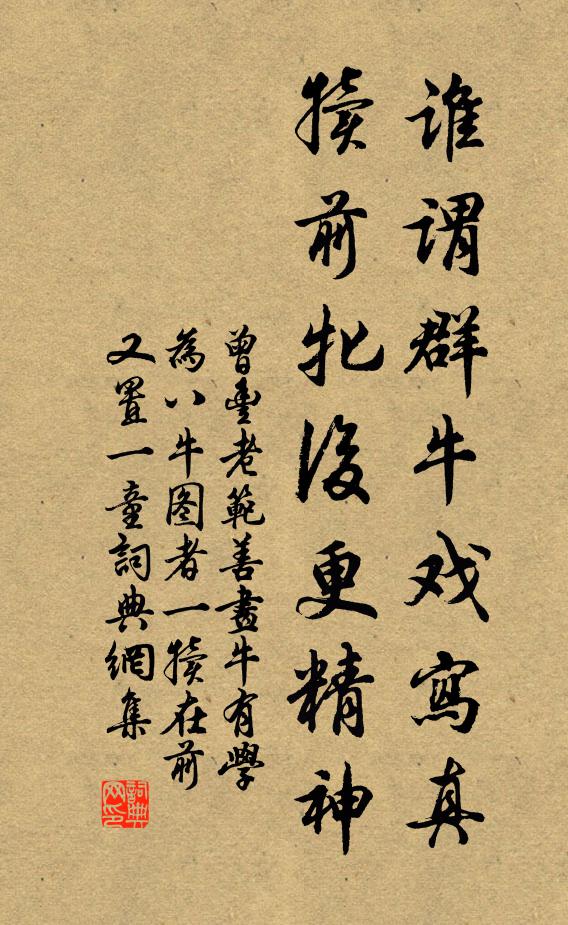 誰謂群牛戏寫真
犢前牝後更精神
曾豊老範善畫牛有學
為八牛图者一犢在前
又置一童詞典網集
詞典网印